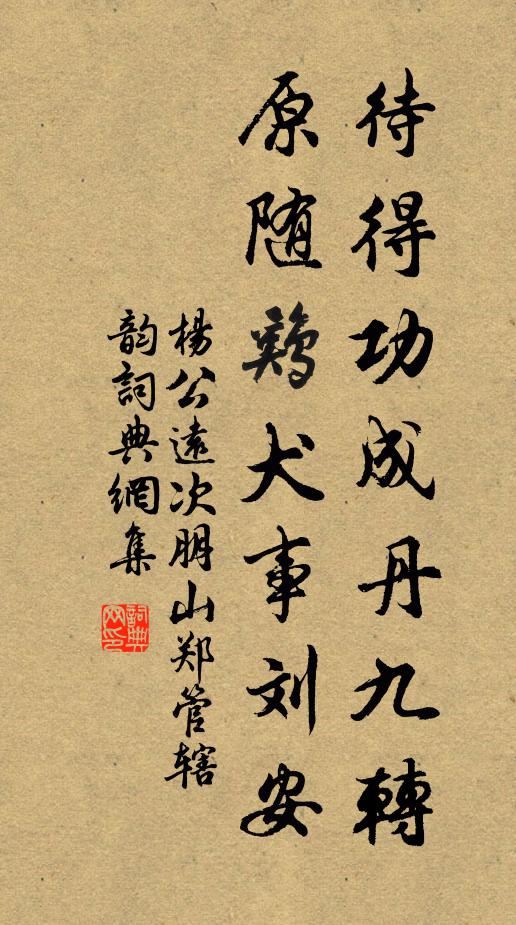 待得功成丹九轉
原随鷄犬事刘安
楊公遠次朋山郑管辖
韵詞典網集
詞典
网印